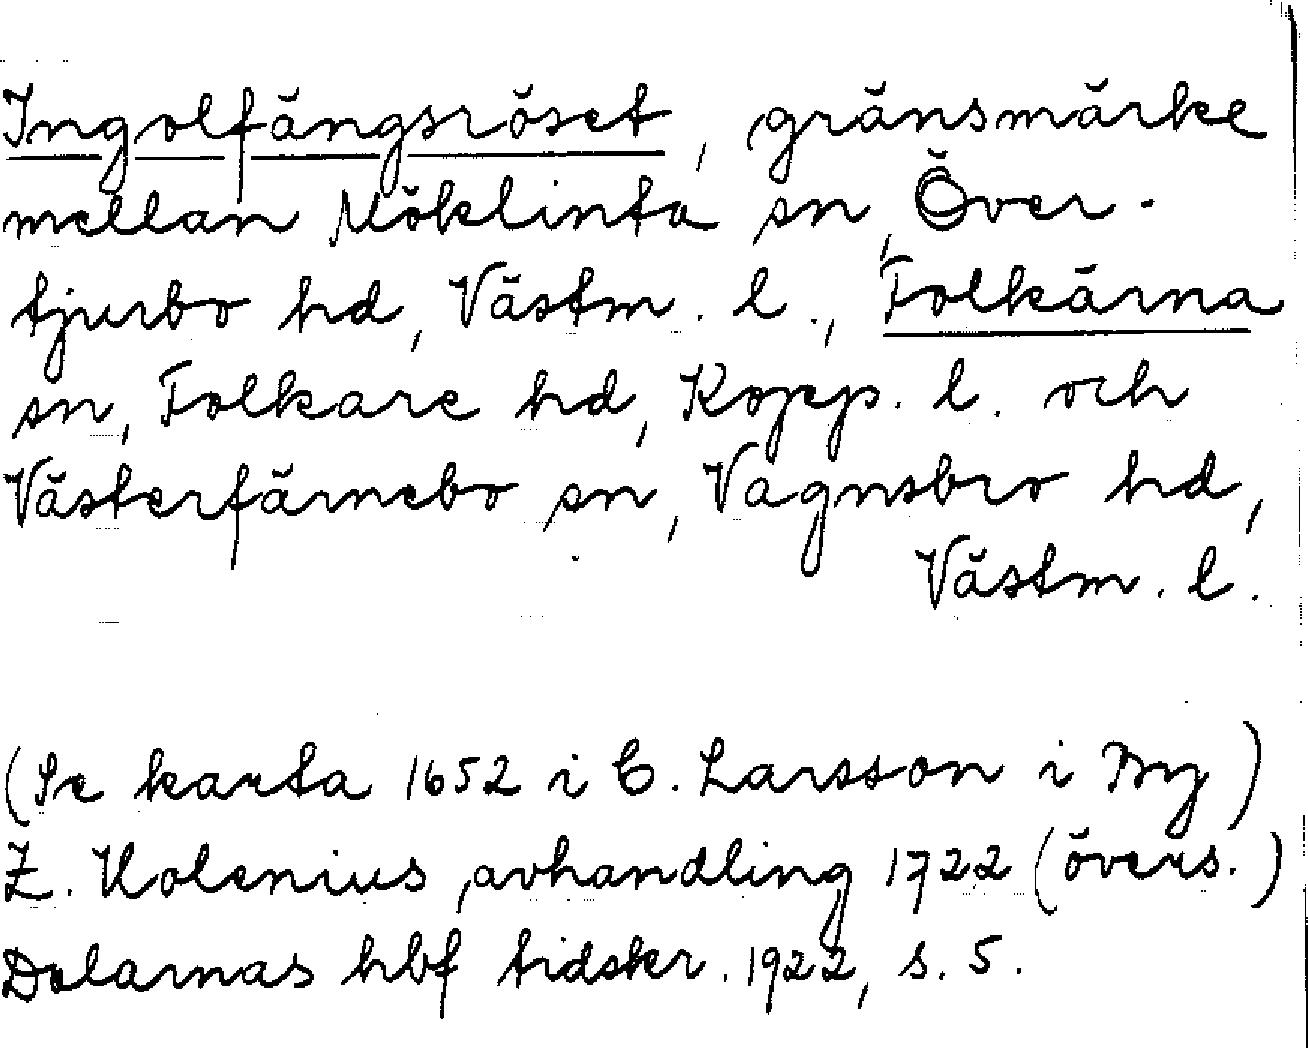 Ingolfängsröset, gränsmärke
mellan Möklinta sn, Över-
tjurbo hd, Västm. l., Folkärna
sn, Folkare hd, Kopp. l. och
Västerfärnebo sn, Vagnsbro hd,
Västm. l.
(Se karta 1652 i C. Larsson i By)
Z. Holenius, avhandling 1722 (övers.)
Dalarnas hbf tidskr. 1922, s. 5.